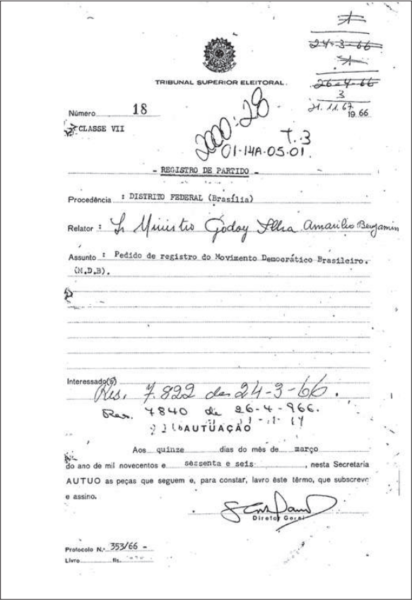 24-3-66
26-4-66
3
21.11.67
1966
TRIBUNAL SUPERIOR ELEITORAL
Número 18
CLASSE VII
2000:28
T.3
01-14A-05-01
- REGISTRO DE PARTIDO -
Procedência : DISTRITO FEDERAL (Brasília)
Relator : Sr Ministro Godoy Ilha Amarilio Benjamin
Assunto : Pedido de registro do Movimento Democrático Brasileiro.
(M.D.B).
Interessado(s)
Res. 7.822 de 24-3-66.
Res. 7840 de 26-4-966.
AUTUAÇÃO
Aos quinze dias do mês de março
do ano de mil novecentos e sessenta e seis, nesta Secretaria
AUTUO as peças que seguem e, para constar, lavro êste têrmo, que subscrevo
e assino.
Diretor Geral
Protocolo N.º 353/66 -
Livro Fls.